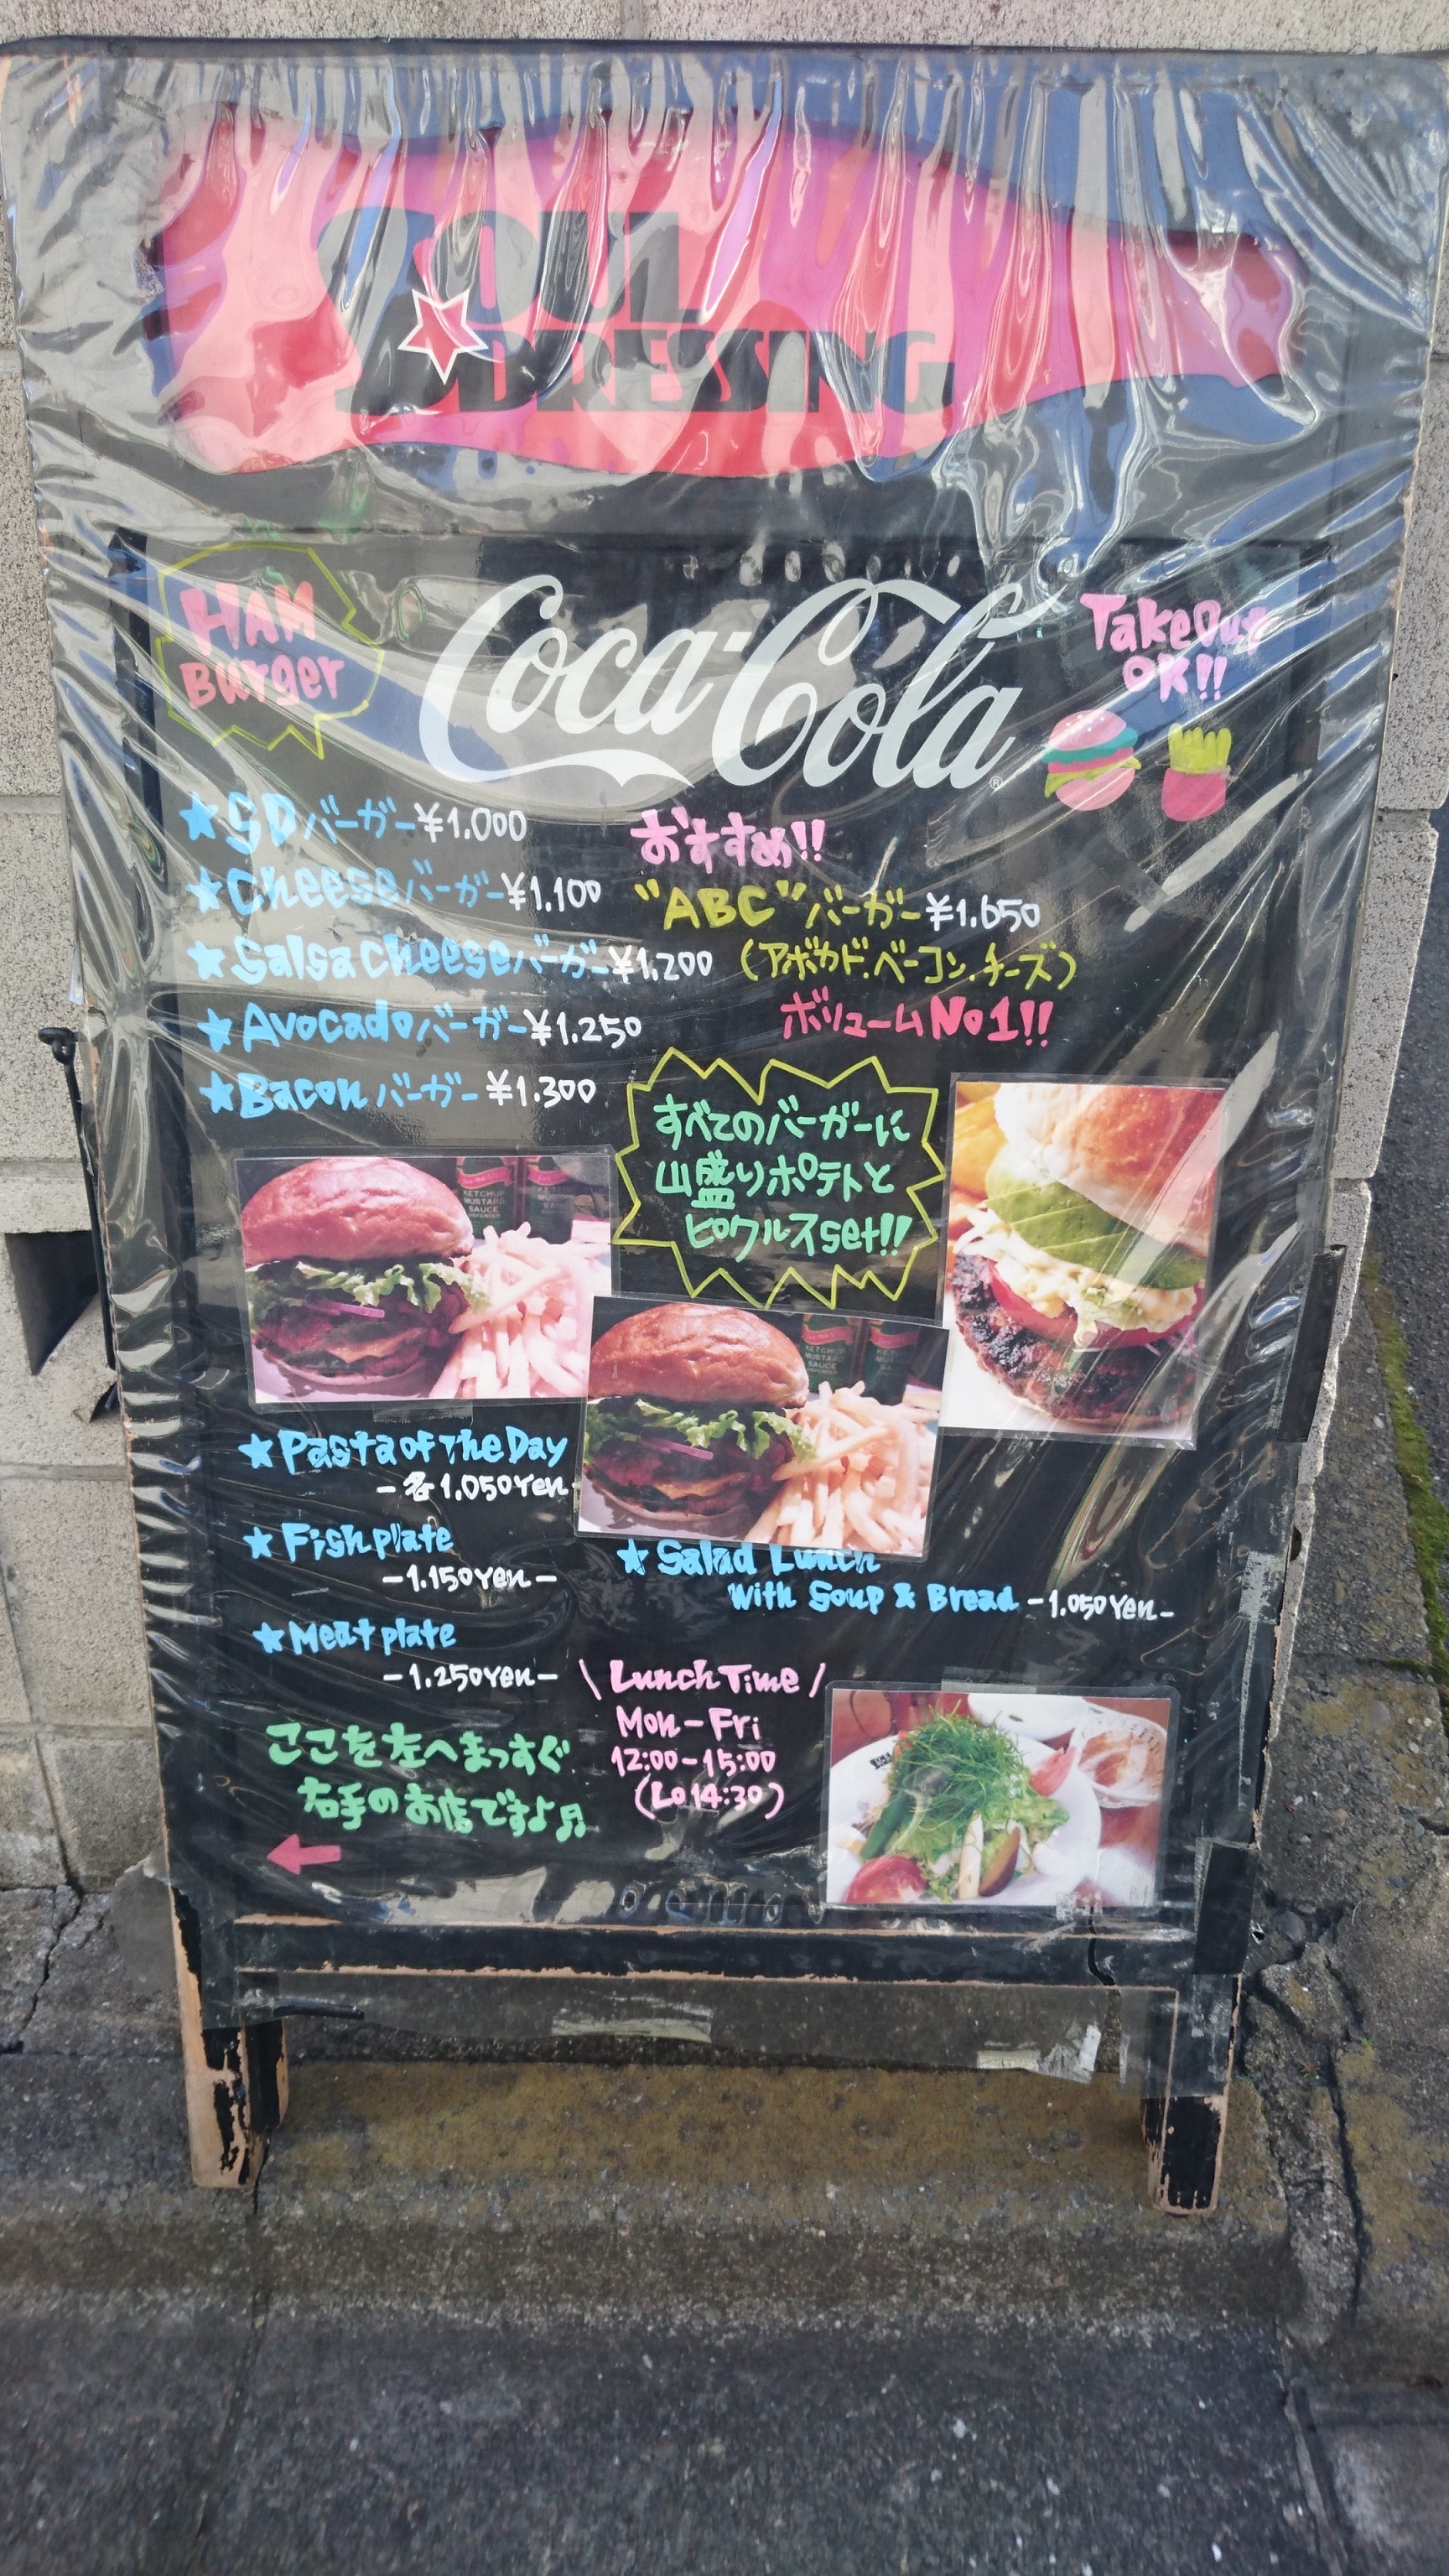 SOUL
DRESSING
HAM
Burger
Coca-Cola
TakeOut
OK!!
★SDバーガー¥1.000
★Cheeseバーガー¥1.100
★Salsa cheeseバーガー¥1.200
★Avocadoバーガー¥1.250
★Baconバーガー¥1.300
おすすめ!!
"ABC"バーガー¥1.650
(アボカド.ベーコン.チーズ)
ボリュームNo1!!
すべてのバーガーに
山盛りポテトと
ピクルスset!!
KETCHUP
MUSTARD
SAUCE
DISPENSER
KETCHUP
MUSTARD
SAUCE
★Pasta of The Day
-各1.050Yen
★Fish plate
-1.150Yen-
★Meat plate
-1.250Yen-
★Salad Lunch
With Soup & Bread -1.050Yen-
\ Lunch Time /
Mon-Fri
12:00-15:00
(Lo14:30)
ここを左へまっすぐ
右手のお店ですよ♬
←